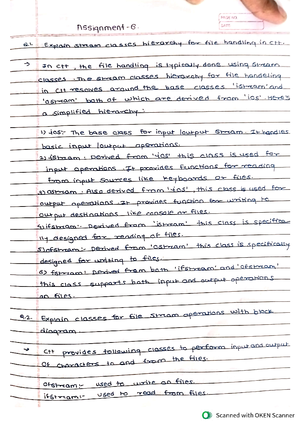 Assignment-6
Q.1 Explain stream classes hierarchy for file handling in C++.
→ In C++, the file handling is typically done using stream
classes. The stream classes hierarchy for file handling
in C++ revolves around the base classes 'istream' and
'ostream' both of which are derived from 'ios'. Here's
a simplified hierarchy:-
1) ios:- The base class for input/output stream. It handles
basic input/output operations.
2) istream: Derived from 'ios' this class is used for
input operations. It provides functions for reading
from input sources like keyboards or files.
3) ostream: Also derived from 'ios', this class is used for
output operations. It provides function for writing to
output destinations like console or files.
4) ifstream:- Derived from 'istream', this class is specifica-
lly designed for reading of files.
5) ofstream: Derived from 'ostream', this class is specifically
designed for writing to files.
6) fstream: Derived from both 'ifstream' and 'ofstream'
this class supports both input and output operations
on files.
Q.2. Explain classes for file stream operations with block
diagram
→ C++ provides following classes to perform input and output
of characters to and from the files.
ofstream:- used to write on files.
ifstream:- used to read from files.
Scanned with OKEN Scanner